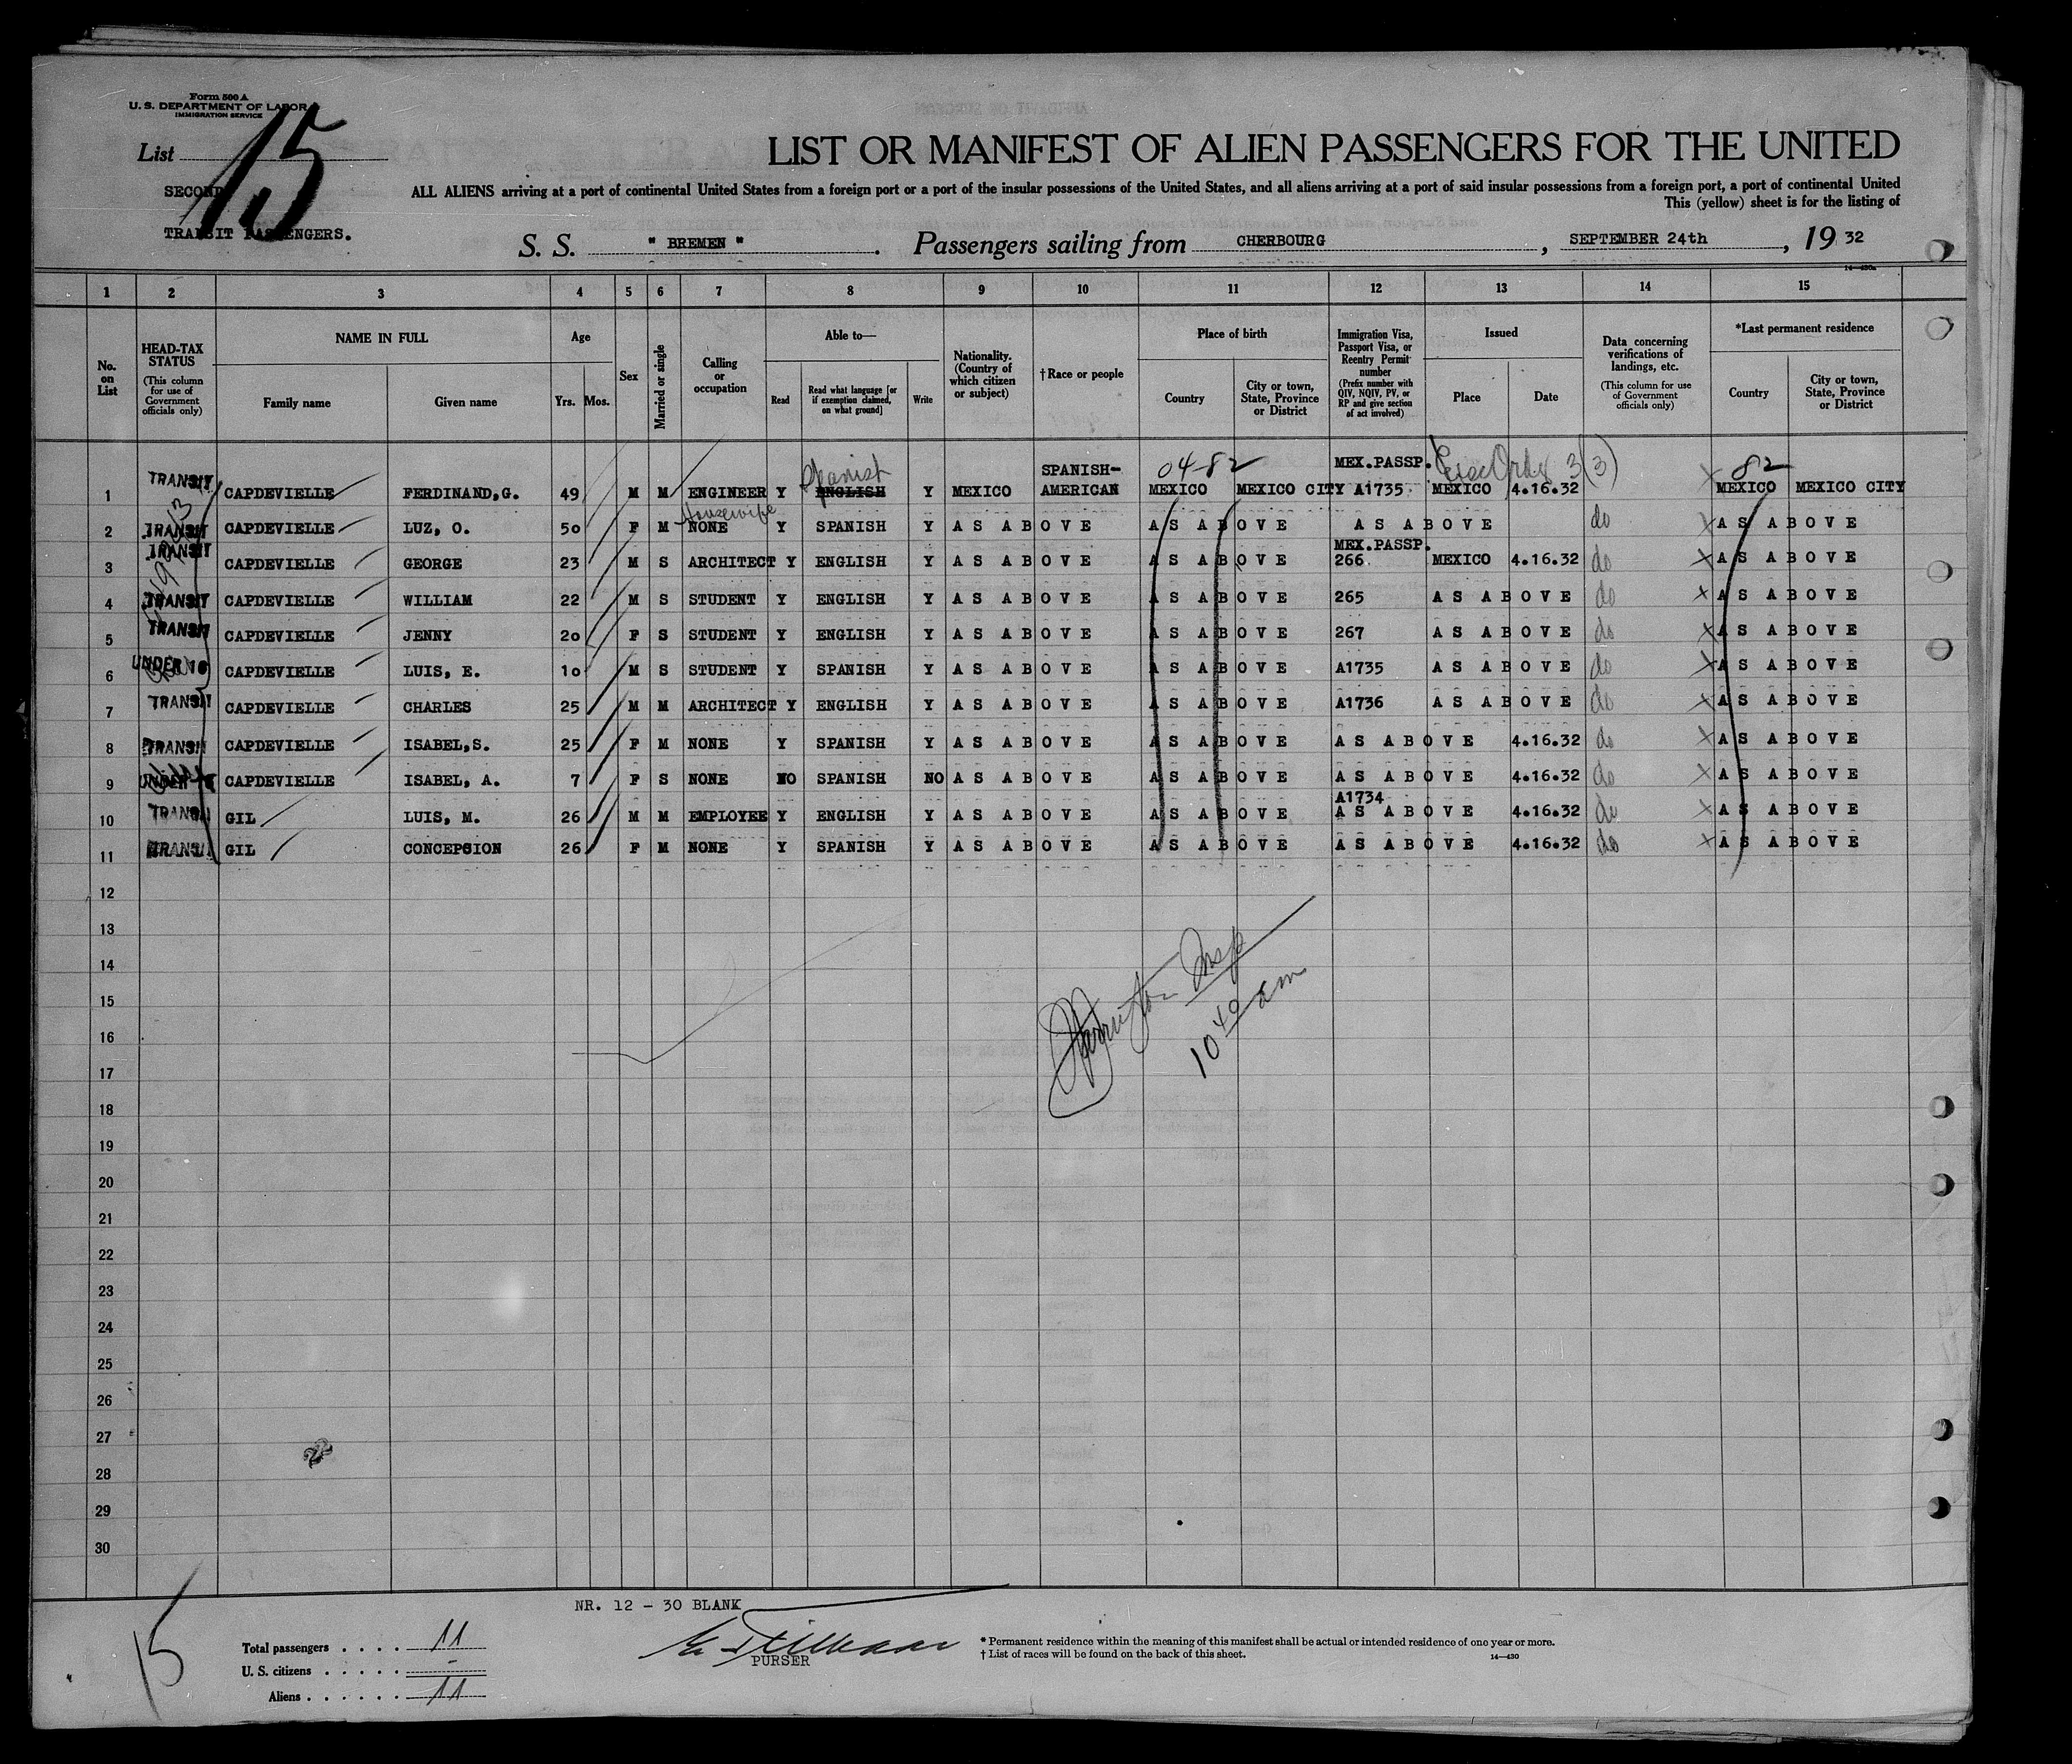 Form 500 A
U. S. DEPARTMENT OF LABOR
IMMIGRATION SERVICE
List 15
LIST OR MANIFEST OF ALIEN PASSENGERS FOR THE UNITED
SECOND
ALL ALIENS arriving at a port of continental United States from a foreign port or a port of the insular possessions of the United States, and all aliens arriving at a port of said insular possessions from a foreign port, a port of continental United
This (yellow) sheet is for the listing of
TRANSIT PASSENGERS.
S. S. " BREMEN " . Passengers sailing from CHERBOURG , SEPTEMBER 24th , 19 32
14—430a
1 2 3 4 5 6 7 8 9 10 11 12 13 14 15
No. on List
HEAD-TAX STATUS (This column for use of Government officials only)
NAME IN FULL
Family name Given name
Age
Yrs. Mos.
Sex
Married or single
Calling or occupation
Able to—
Read Read what language [or if exemption claimed, on what ground] Write
Nationality. (Country of which citizen or subject)
† Race or people
Place of birth
Country City or town, State, Province or District
Immigration Visa, Passport Visa, or Reentry Permit number (Prefix number with QIV, NQIV, PV, or RP and give section of act involved)
Issued
Place Date
Data concerning verifications of landings, etc. (This column for use of Government officials only)
*Last permanent residence
Country City or town, State, Province or District
Spanish SPANISH- 04-82 MEX.PASSP. 3(3) 82
1 TRANSIT CAPDEVIELLE FERDINAND,G. 49 M M ENGINEER Y ENGLISH Y MEXICO AMERICAN MEXICO MEXICO CITY A1735 MEXICO 4.16.32 MEXICO MEXICO CITY
Housewife
2 TRANSIT CAPDEVIELLE LUZ, O. 50 F M NONE Y SPANISH Y AS ABOVE AS ABOVE AS ABOVE do AS ABOVE
MEX.PASSP.
3 TRANSIT CAPDEVIELLE GEORGE 23 M S ARCHITECT Y ENGLISH Y AS ABOVE AS ABOVE 266 MEXICO 4.16.32 do AS ABOVE
4 TRANSIT CAPDEVIELLE WILLIAM 22 M S STUDENT Y ENGLISH Y AS ABOVE AS ABOVE 265 AS ABOVE do AS ABOVE
5 TRANSIT CAPDEVIELLE JENNY 20 F S STUDENT Y ENGLISH Y AS ABOVE AS ABOVE 267 AS ABOVE do AS ABOVE
6 UNDER 16 CAPDEVIELLE LUIS, E. 10 M S STUDENT Y SPANISH Y AS ABOVE AS ABOVE A1735 AS ABOVE do AS ABOVE
7 TRANSIT CAPDEVIELLE CHARLES 25 M M ARCHITECT Y ENGLISH Y AS ABOVE AS ABOVE A1736 AS ABOVE do AS ABOVE
8 TRANSIT CAPDEVIELLE ISABEL,S. 25 F M NONE Y SPANISH Y AS ABOVE AS ABOVE AS ABOVE 4.16.32 do AS ABOVE
9 UNDER 16 CAPDEVIELLE ISABEL, A. 7 F S NONE NO SPANISH NO AS ABOVE AS ABOVE AS ABOVE 4.16.32 do AS ABOVE
A1734
10 TRANSIT GIL LUIS, M. 26 M M EMPLOYEE Y ENGLISH Y AS ABOVE AS ABOVE AS ABOVE 4.16.32 do AS ABOVE
11 TRANSIT GIL CONCEPSION 26 F M NONE Y SPANISH Y AS ABOVE AS ABOVE AS ABOVE 4.16.32 do AS ABOVE
12
13
14
15
16
17
18
19
20
21
22
23
24
25
26
27
28
29
30
Insp
10 40 am
NR. 12 - 30 BLANK
15
Total passengers . . . . 11
U. S. citizens . . . . . -
Aliens . . . . . . 11
PURSER
* Permanent residence within the meaning of this manifest shall be actual or intended residence of one year or more.
† List of races will be found on the back of this sheet.
14—430